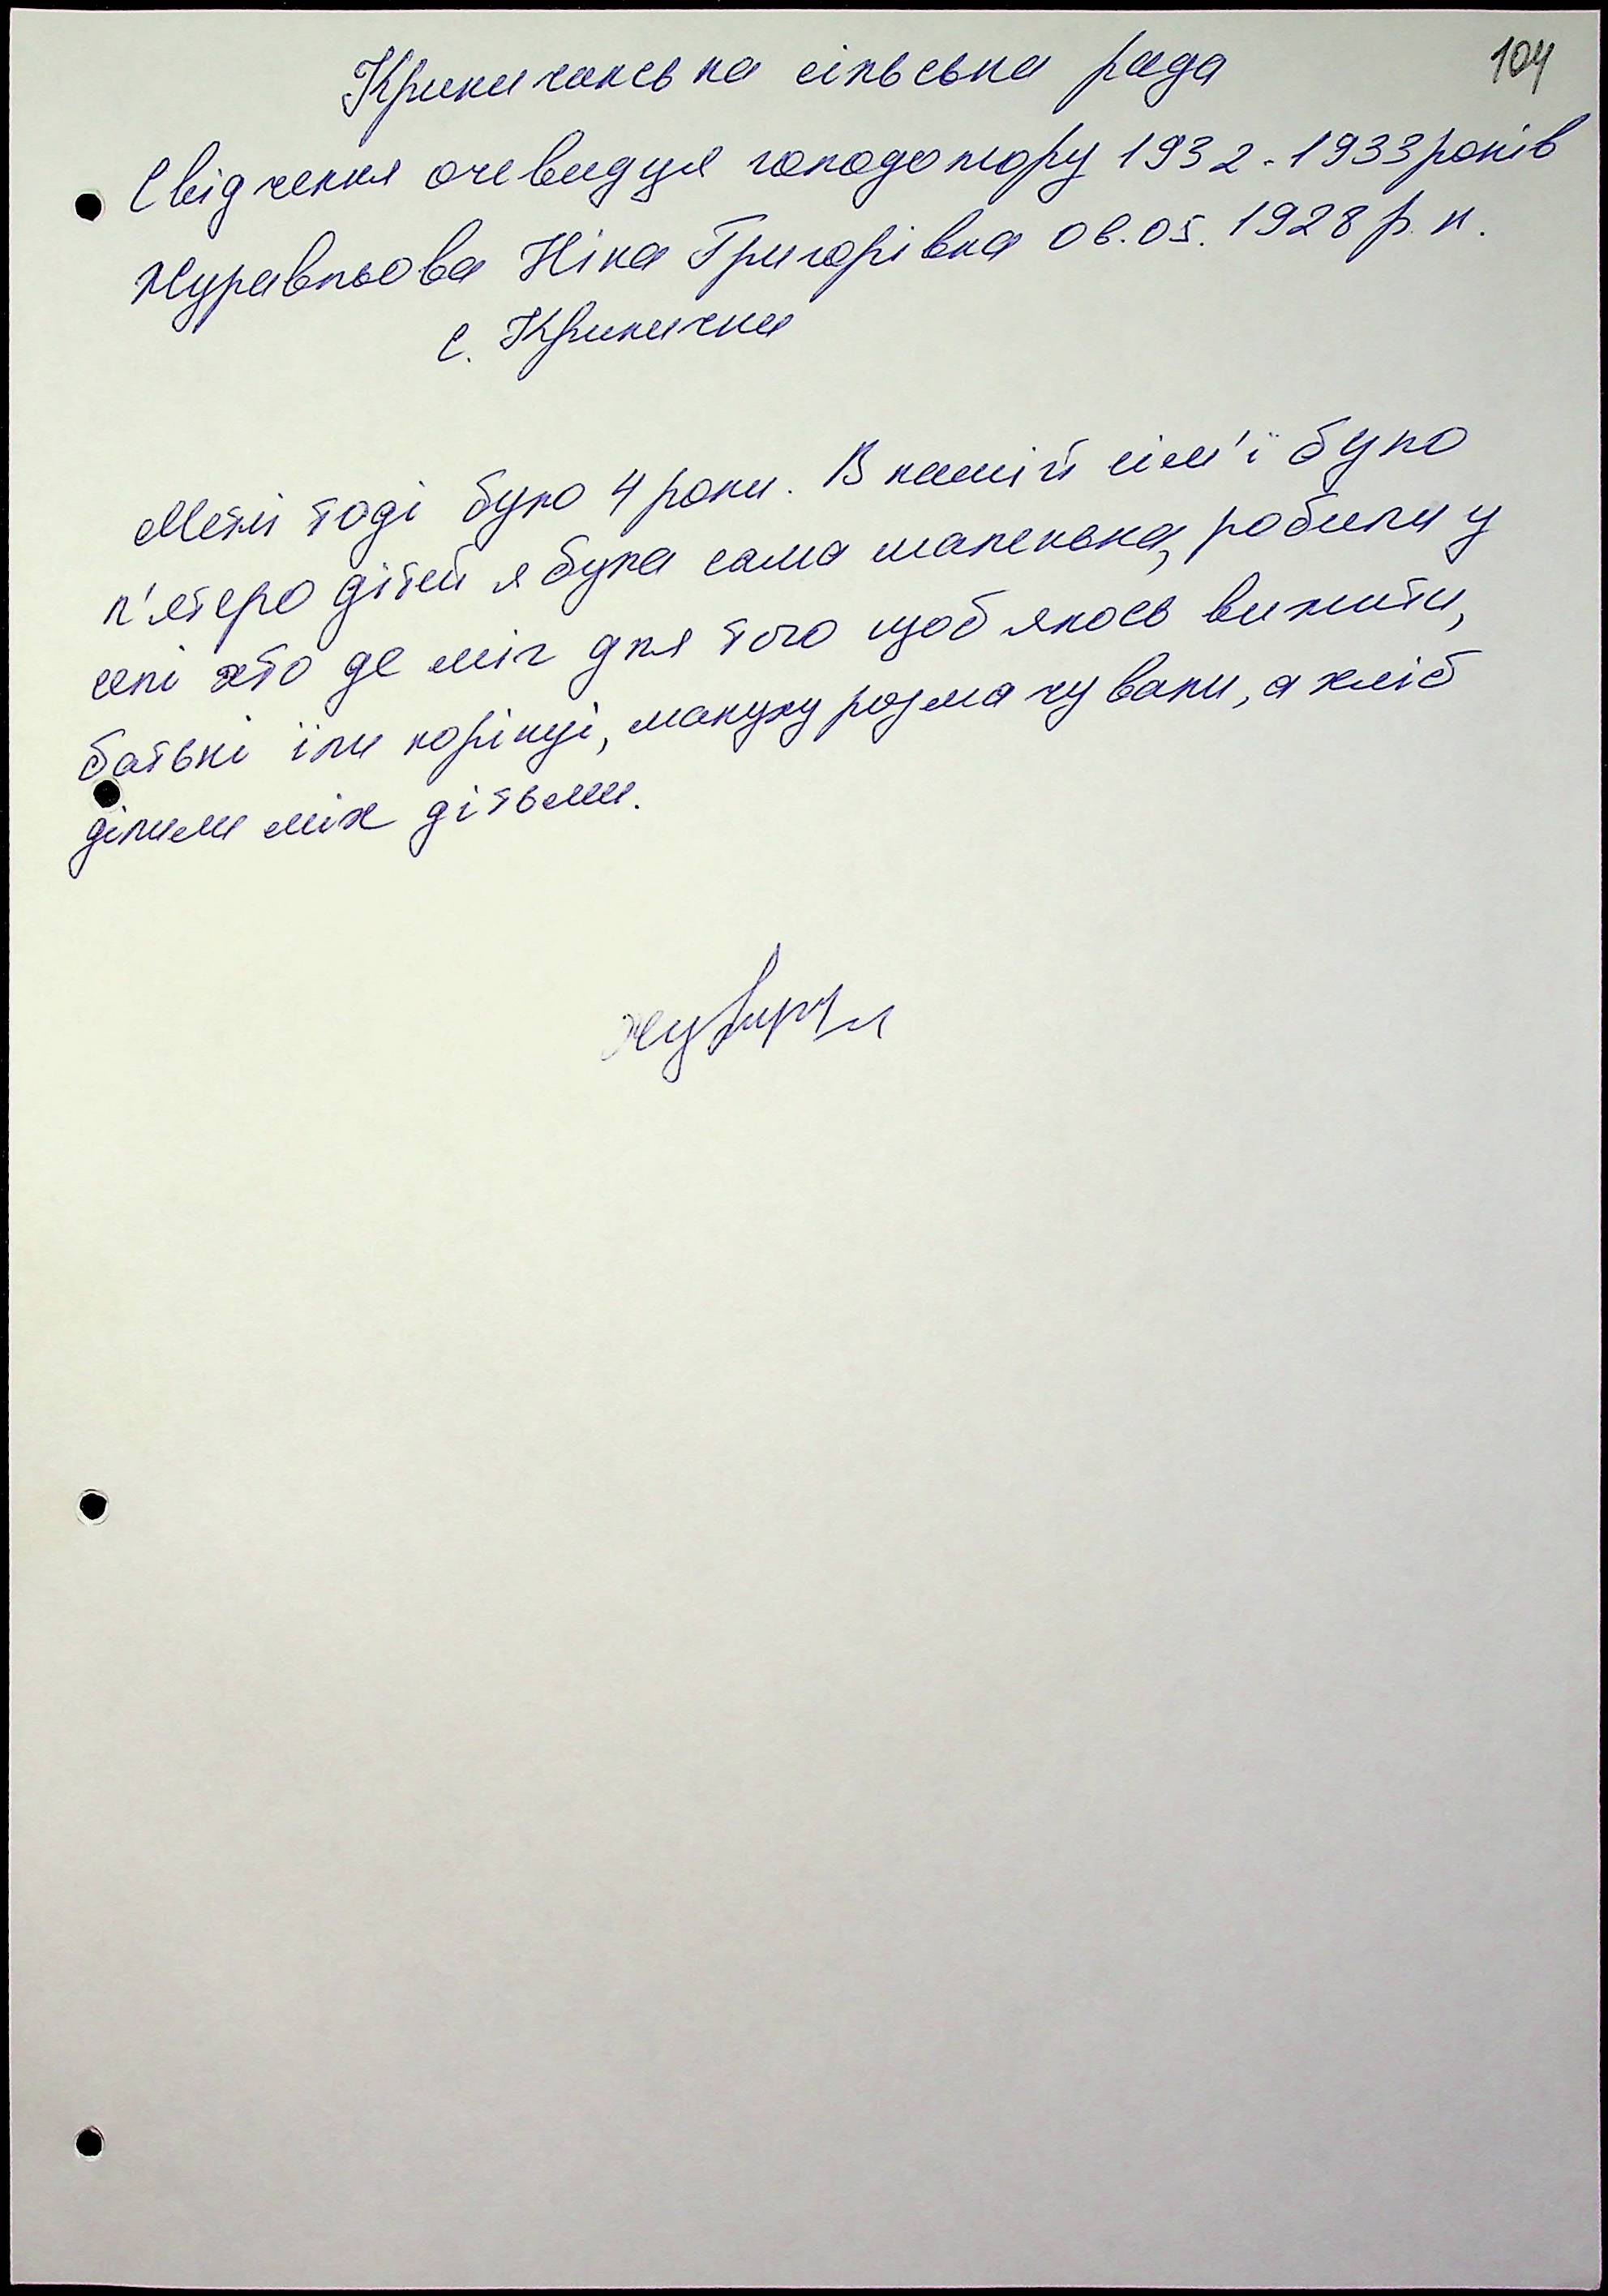 104
Криничанська сільська рада
Свідчення очевидця голодомору 1932-1933 років
Журавльова Ніна Григорівна 06.05.1928 р. н.
с. Кринички
Мені тоді було 4 роки. В нашій сім'ї було
п'ятеро дітей я була сама маленька, робили у
селі хто де міг для того щоб якось вижити,
батьки їли корінці, макуху розмачували, а хліб
ділили між дітьми.